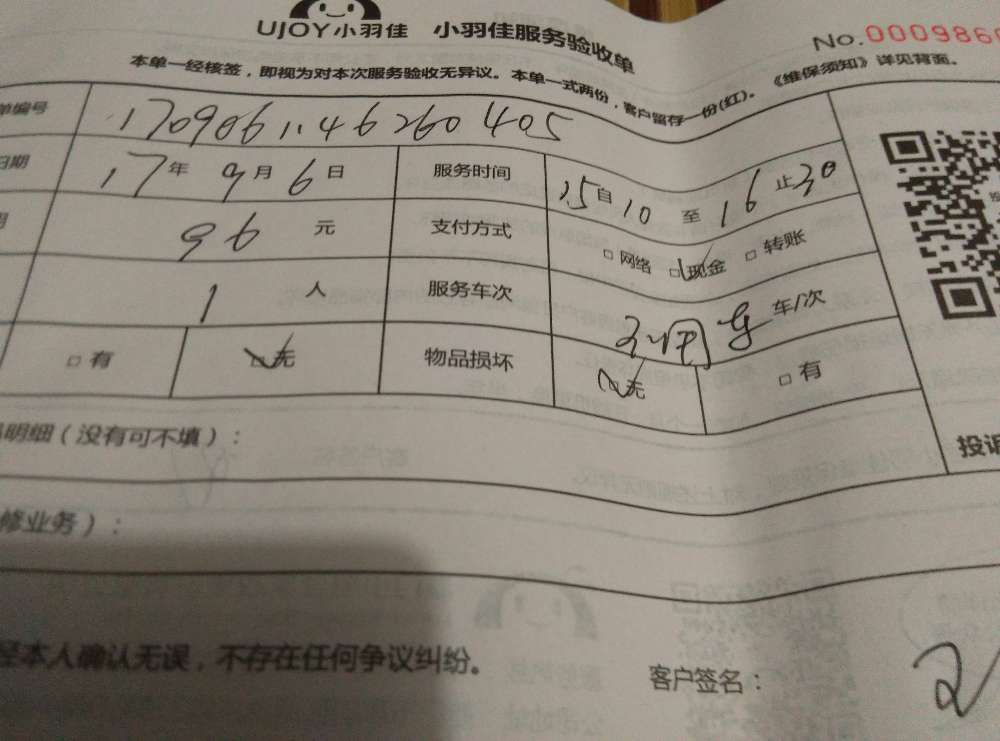 UJOY小羽佳 小羽佳服务验收单
No.0009860
本单一经核签，即视为对本次服务验收无异议。本单一式两份，客户留存一份(红)。《维保须知》详见背面。
单编号 1709061146260405
日期 17年9月6日 服务时间 15自10至16止30
96元 支付方式 □网络 □现金 □转账
1人 服务车次 车/次
□有 □无 物品损坏 □无 □有
明细（没有可不填）：
投诉
修业务）：
经本人确认无误，不存在任何争议纠纷。
客户签名：